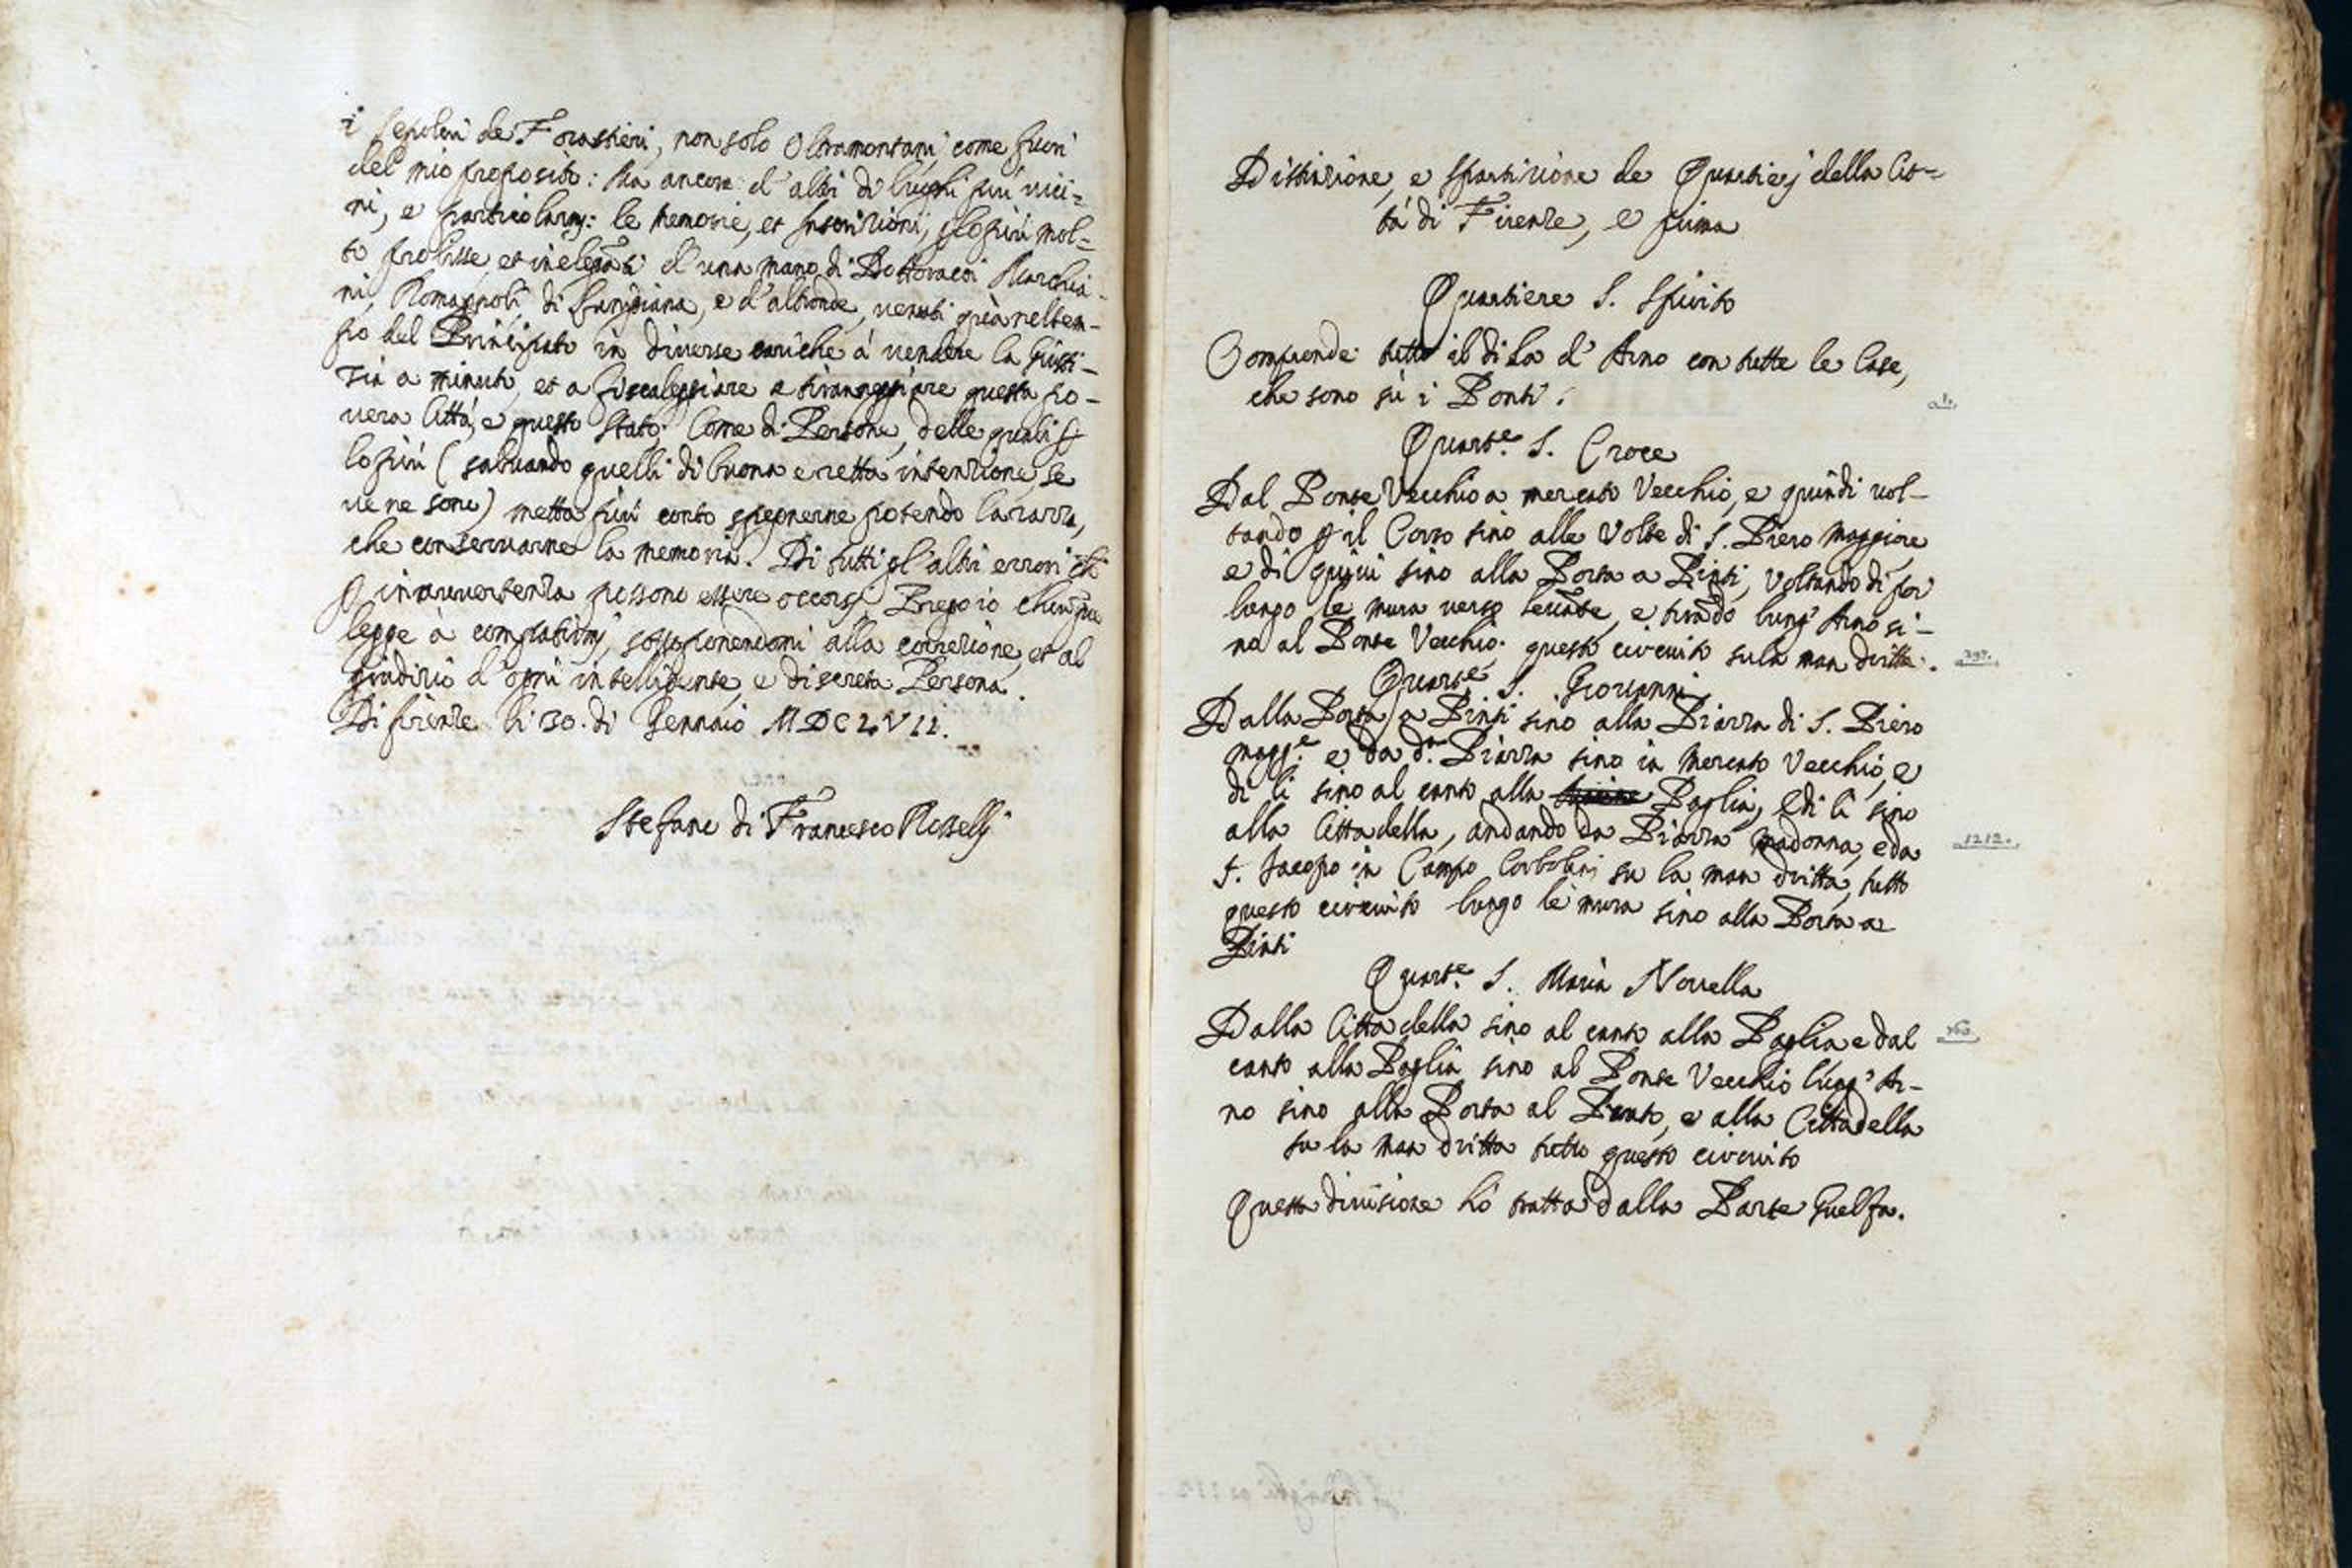 i sepolcri de Forastieri, non solo Oltramontani, come fuori
del mio proposito: Ma ancora d'altri di luoghi più vici=
ni, e particolarm: le memorie, et Inscrizioni, plopiù mol=
to prolisse, et ineleganti d'una mano di Dottoracci Marchia-
ni, Romagnoli, di Lunigiana, e d'altronde, venuti quà nel tem-
po del Principato in diverse cariche à vendere la Giusti-
zia a minuto, et a fiscaleggiare e tiranneggiare questa po-
vera Città, e questo Stato; Come di Persone, delle quali p
lopiù (salvando quelli di buona e retta intenzione, se
ve ne sono) metta più conto spegnerne potendo la razza,
che conservarne la memoria. Di tutti gl'altri errori che
p inavvertenza possono essere occorsi, Prego io chiunque
legge à compatirmi, sottoponendomi alla correzione, et al
giudizio d'ogni intelligente, e discreta Persona.
Di firenze li 30. di Gennaio MDCLVII.
Stefano di Francesco Rosselli
Distinzione, e Spartizione de Quartieri della Cit=
tà di Firenze, e prima
Quartiere S. Spirito
Comprende tutto il di la d'Arno con tutte le Case,
che sono sù i Ponti.
a 1.
Quart.e S. Croce
Dal Ponte Vecchio a mercato Vecchio, e quindi vol-
tando p il Corso sino alle Volte di S. Piero Maggiore
e di quivi sino alla Porta a Pinti, voltando di poi
lungo le mura verso levante, e tirado lung'Arno si-
no al Ponte Vecchio. questo circuito su la man dritta.
Quart.e S. Giovanni
Dalla Porta a Pinti sino alla Piazza di S. Piero
magg.e e da d.a Piazza sino in Mercato Vecchio, e
di li sino al canto alla Paglia, e di li sino
alla Cittadella, andando da Piazza Madonna, e da
S. Iacopo in Campo Corbolini su la man dritta, tutto
1212.
questo circuito lungo le mura sino alla Porta a
Pinti
Quart.e S. Maria Novella
Dalla Cittadella sino al canto alla Paglia e dal
canto alla Paglia sino al Ponte Vecchio lung'Ar-
no sino alla Porta al Prato, e alla Cittadella
su la man dritta tutto questo circuito
Questa divisione hò tratta dalla Parte Guelfa.